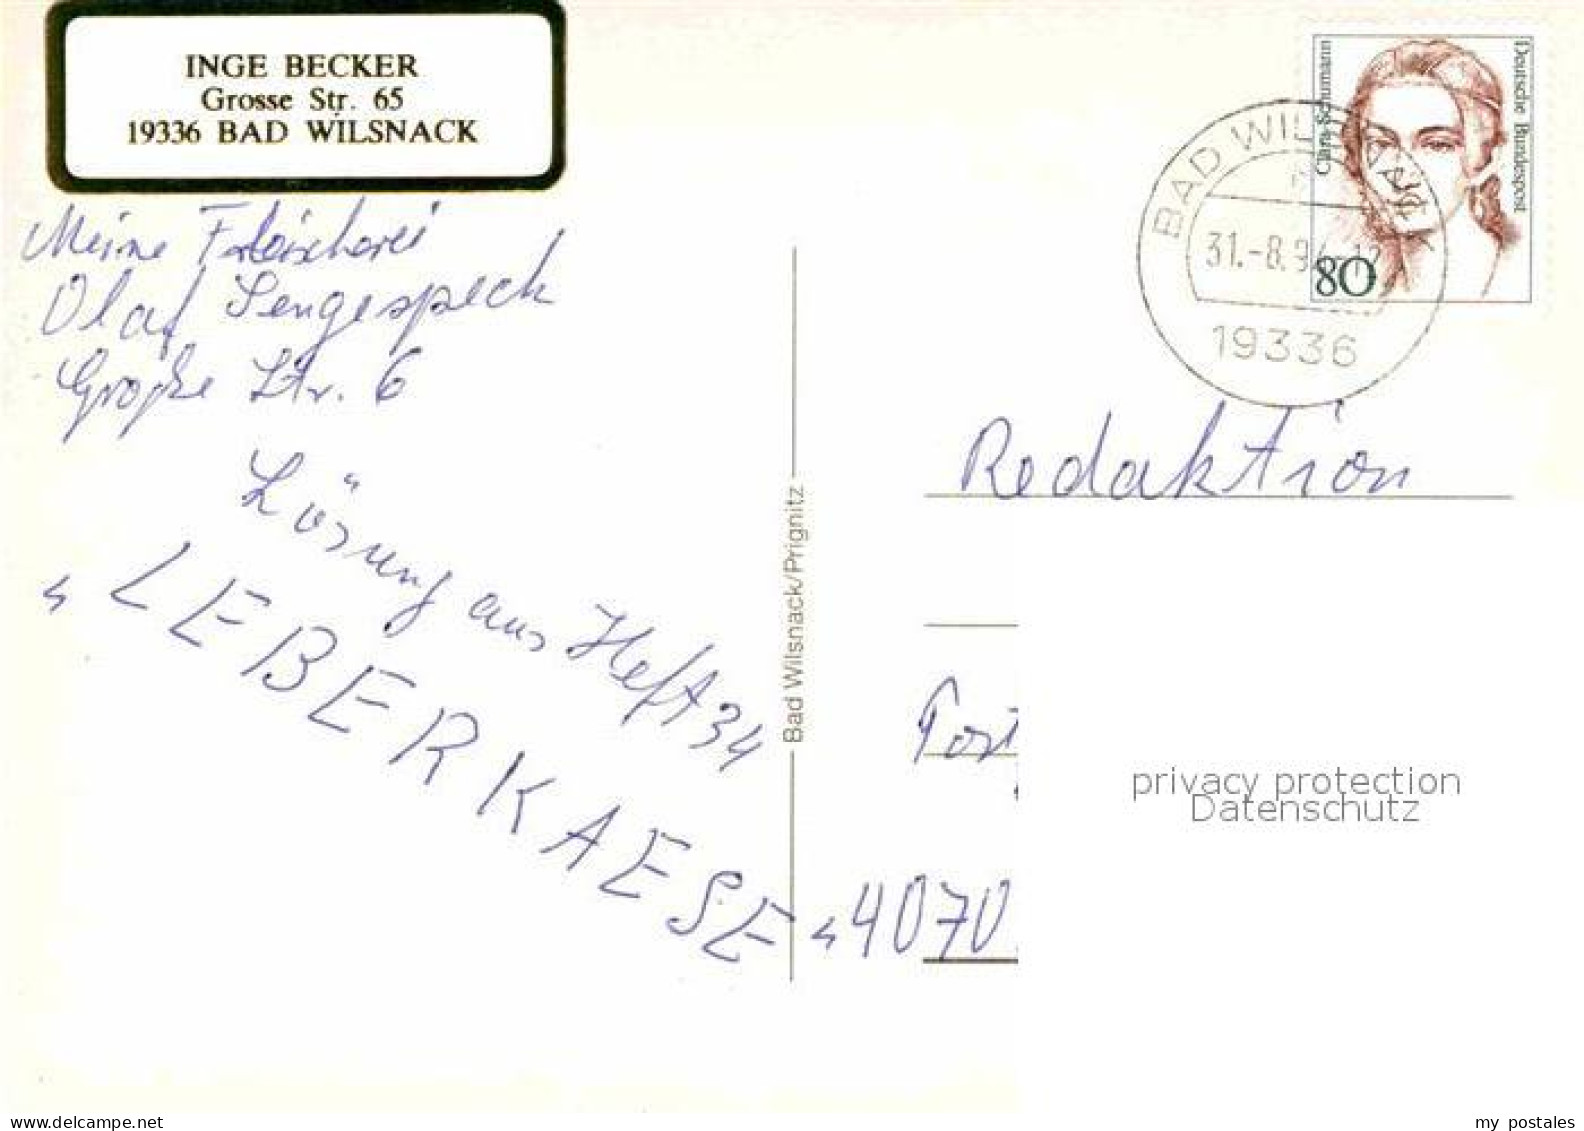 INGE BECKER
Grosse Str. 65
19336 BAD WILSNACK
Meine Fleischerei
Olaf Sengespeck
Große Str. 6
Lösung aus Heft 34
"LEBERKAESE"
Bad Wilsnack/Prignitz
Clara Schumann
Deutsche Bundespost
80
BAD WILSNACK
31.-8.94-12
19336
Redaktion
Post
4070
privacy protection
Datenschutz
my postales